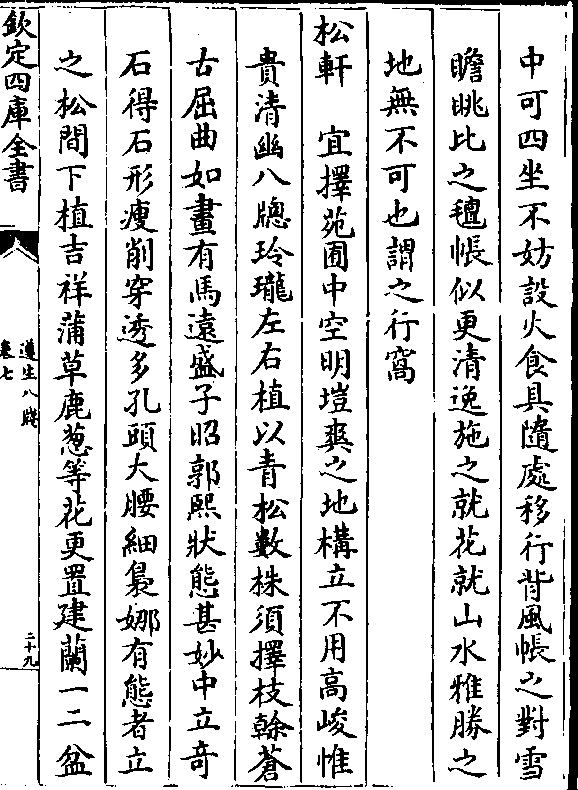 中可四坐不妨設火食具隨處移行背風帳之對雪
瞻眺比之氊帳似更清逸施之就花就山水雅勝之
地無不可也謂之行窩
松軒　宜擇苑囿中空明塏爽之地構立不用高峻惟
貴清幽八牕玲瓏左右植以青松數株須擇枝榦蒼
古屈曲如畫有馬遠盛子昭郭熙狀態甚妙中立奇
石得石形瘦削穿透多孔頭大腰細裊娜有態者立
之松間下植吉祥蒲草鹿葱等花更置建蘭一二盆
欽定四庫全書
遵生八牋
卷七
二十九